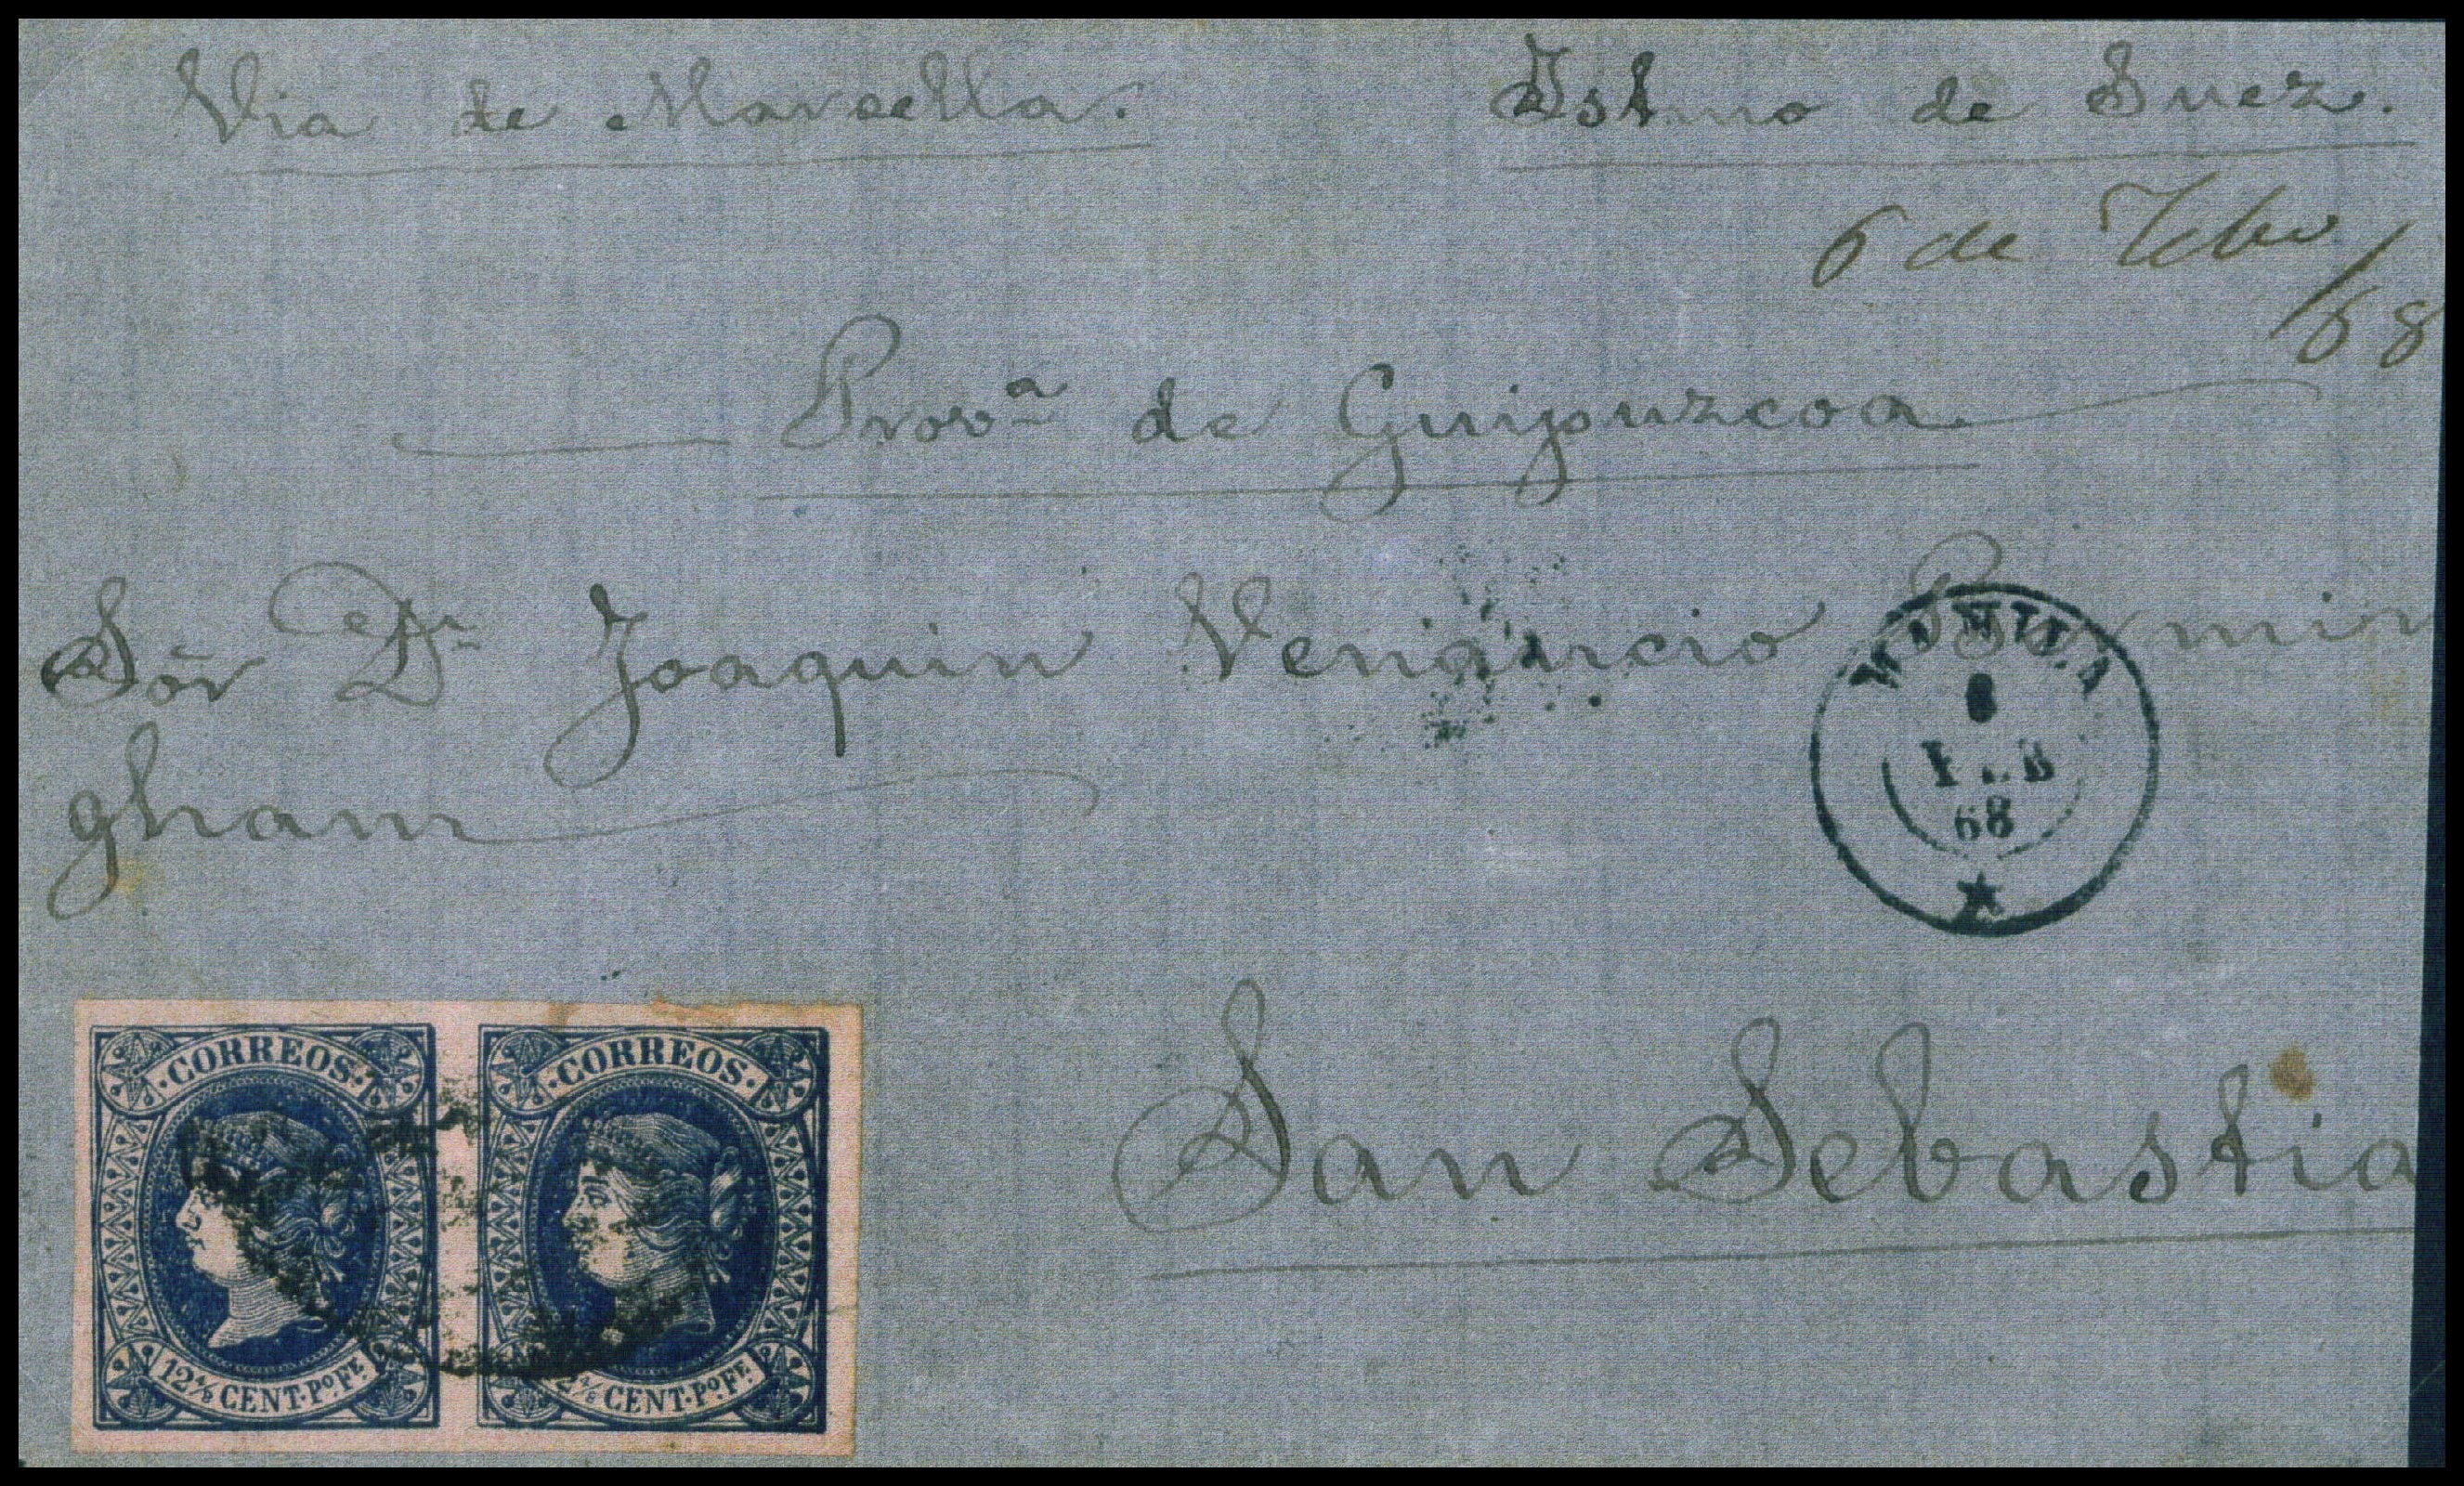 Via de Marsella. Istmo de Suez.
6 de Febo
/68
Provª de Guipuzcoa
Sōr Dn Joaquin Venancio Bermin
gham
MANILA
6
FEB
68
San Sebastia
CORREOS CORREOS
12 4/8 CENT. Pº Fᴱ 12 4/8 CENT. Pº Fᴱ